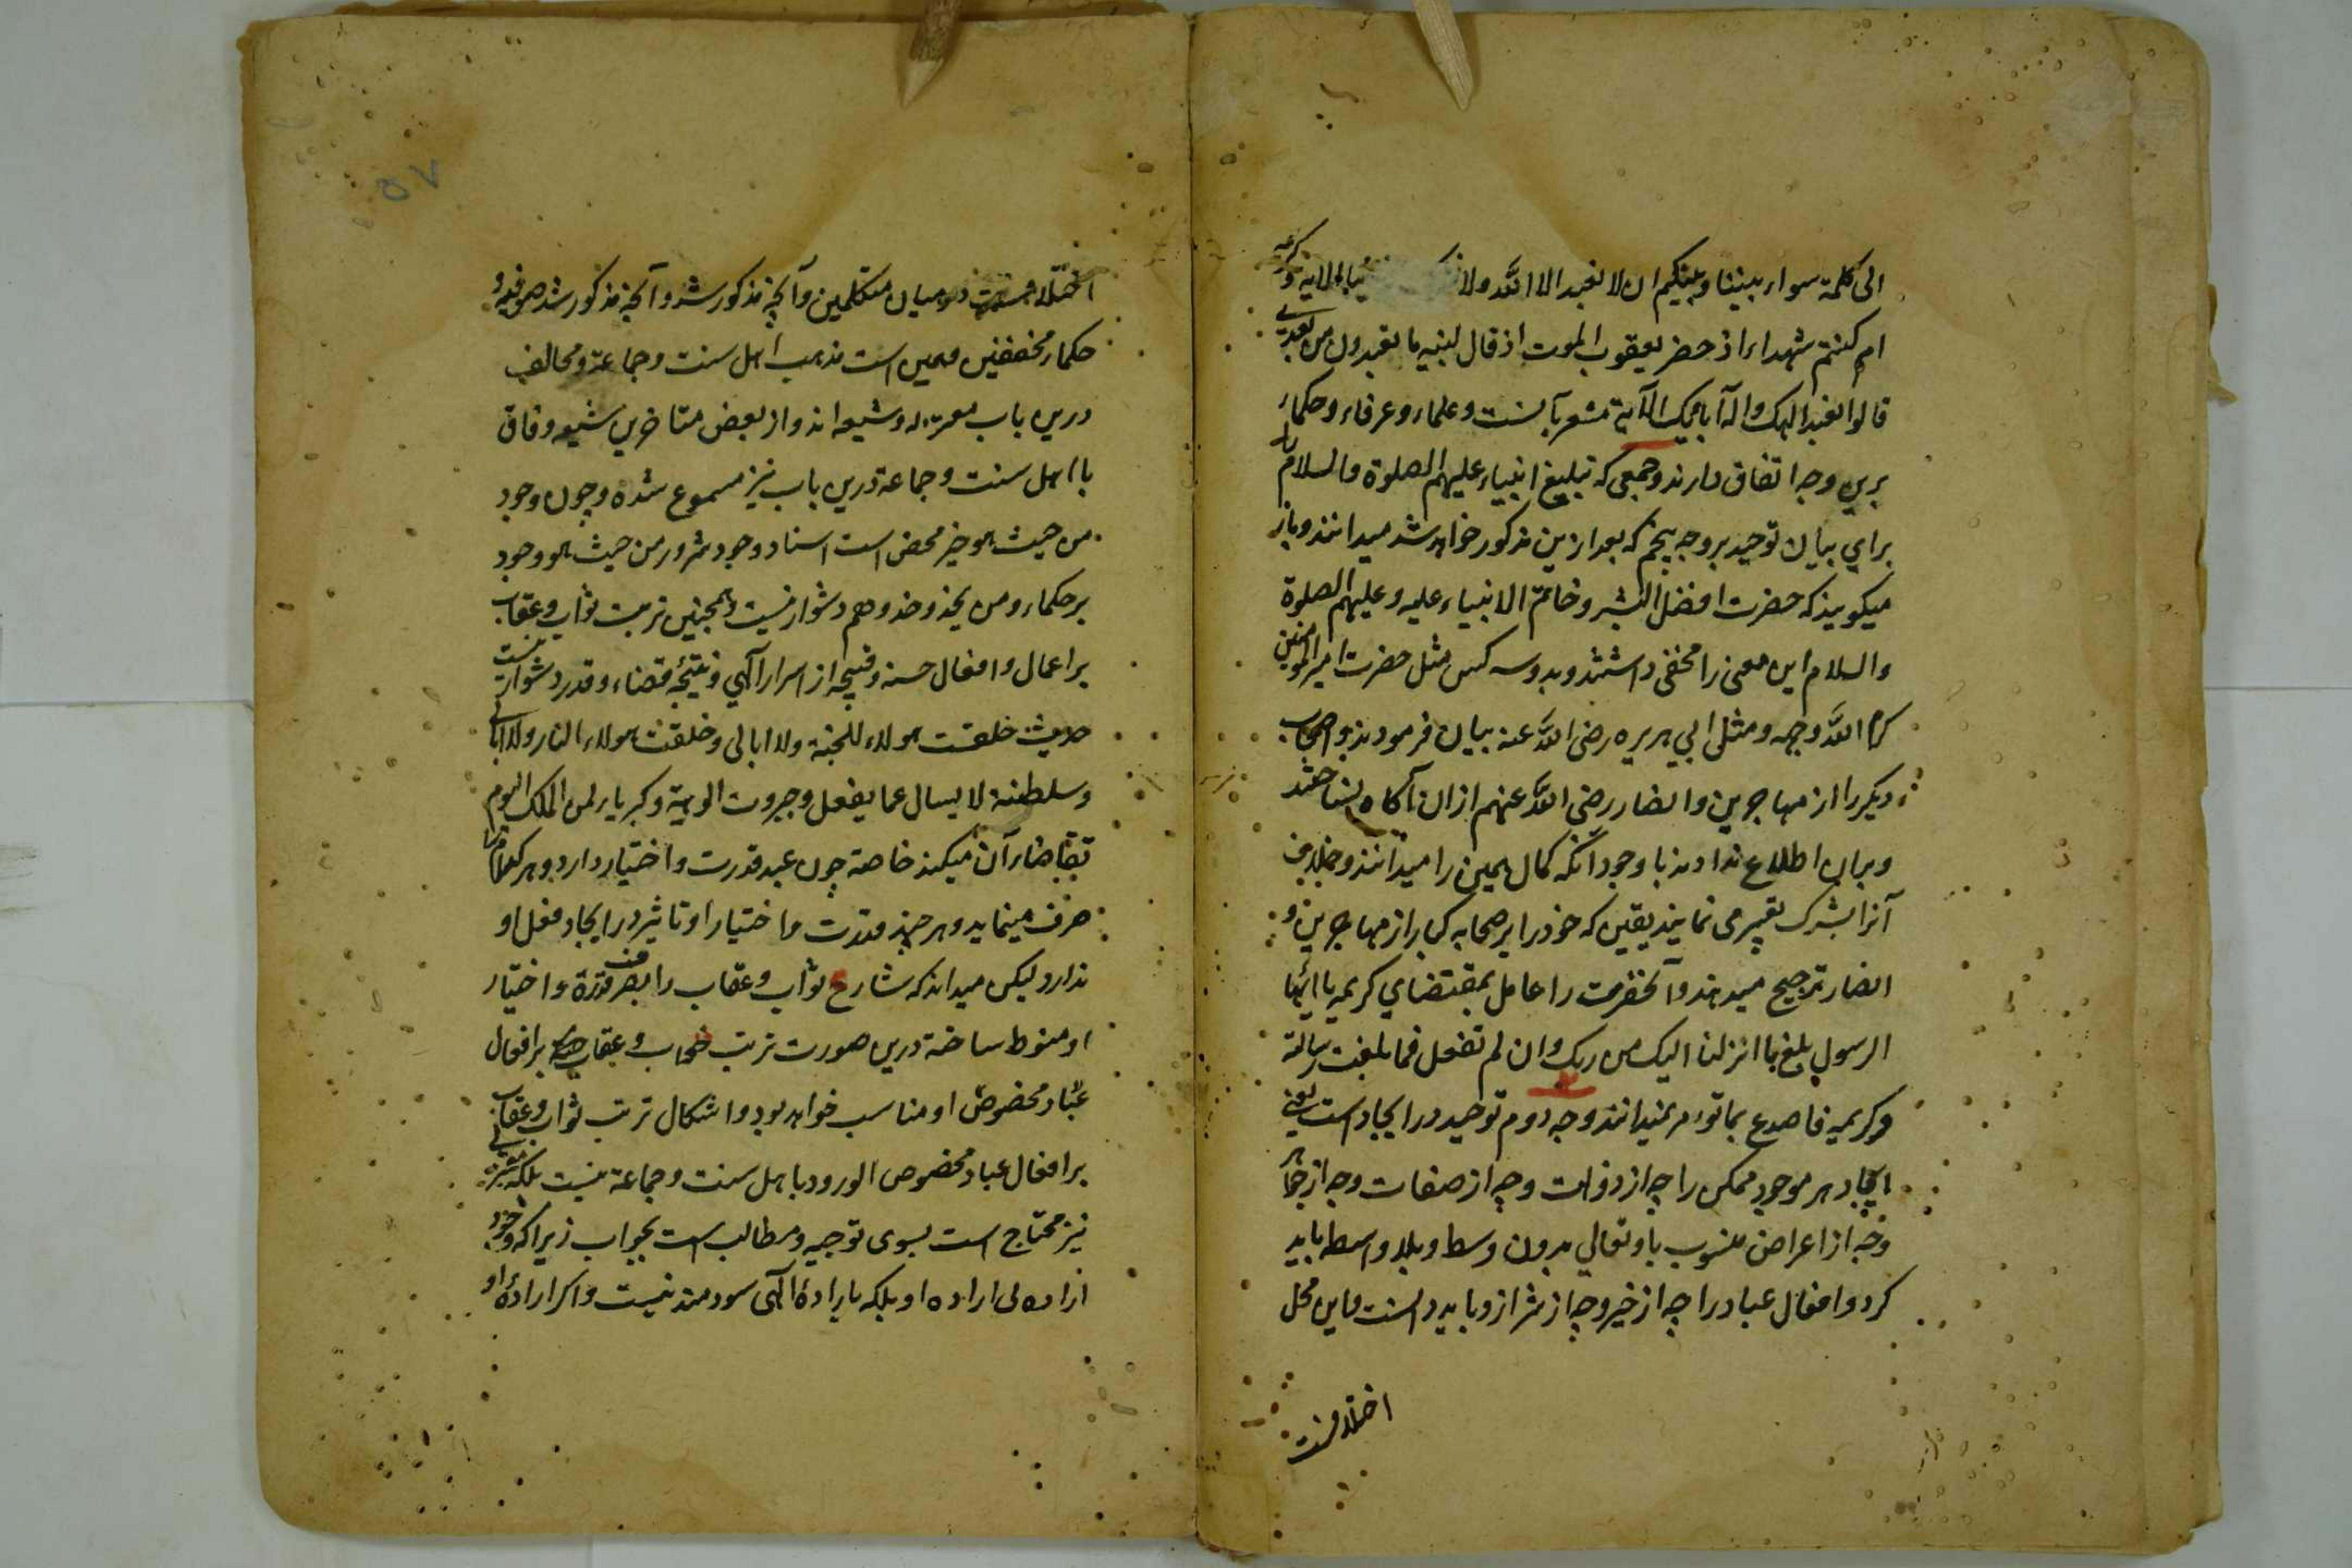 الی کلمة سواء بیننا وبینکم ان لا نعبد الا الله ولا بالآیه و کریمه
ام کنتم شهداء اذ حضر یعقوب الموت اذ قال لبنیه ما تعبدون من بعدی
قالوا نعبد الهک واله آبائک الآیة مشعر بآنست وعلماء وعرفاء وحکماء
برین وجه اتفاق دارند وجمعی که تبلیغ انبیاء علیهم الصلوة والسلام را
برای بیان توحید بر وجه پنجم که بعد ازین مذکور خواهد شد میدانند وباز
میکویند که حضرت افضل البشر وخاتم الانبیاء علیه وعلیهم الصلوة
والسلام این معنی را مخفی داشتند وبدو سه کس مثل حضرت امیر المومنین
کرم الله وجهه ومثل ابی هریره رضی الله عنه بیان فرمودند واصحاب
دیکر را از مهاجرین وانصار رضی الله عنهم ازان آکاه نساختند
وبران اطلاع ندادند باوجود آنکه کمال همین را میدانند وخلاف
آنرا بشرک تعبیر می نمایند یقین که خود را بر صحابه کبار از مهاجرین و
انصار ترجیح میدهند وآنحضرت را عامل بمقتضای کریمه یا ایها
الرسول بلغ ما انزلنا الیک من ربک وان لم تفعل فما بلغت رسالته
وکریمه فاصدع بما تؤمر نمیدانند وجه دوم توحید در ایجاد است یعنی
ایجاد هر موجود ممکن را چه از ذوات وچه از صفات وچه از جواهر
وچه از اعراض منسوب باو تعالی بدون وسط وبلا واسطه باید
کرد وافعال عباد را چه از خیر وچه از شر ازو باید دانست واین محل
اختلافست
۵۷
اختلافست در میان متکلمین وآنچه مذکور شد وآنچه مذکور شد صوفیه و
حکماء محققین وهمین است مذهب اهل سنت وجماعة ومخالف
درین باب معتزله وشیعه اند واز بعض متاخرین شیعه وفاق
با اهل سنت وجماعة درین باب نیز مسموع شده وچون وجود
من حیث هو خیر محض است اسناد وجود شرور من حیث هو وجود
بر حکماء ومن یحذو حذوهم دشوار نیست وهمچنین ترتب ثواب وعقاب
بر اعمال وافعال حسنه وقبیحه از اسرار آلهی ونتیجه قضاء وقدر دشوار نیست
حدیث خلقت هولاء للجنة ولا ابالی وخلقت هولاء للنار ولا ابالی
وسلطنة لا یسال عما یفعل وجبروت الوهیة وکبریاء لمن الملک الیوم
تقاضاء آن میکند خاصة چون عبد قدرت واختیار دارد وهر کدام را
صرف مینماید وهر چند قدرت واختیار او تاثیر در ایجاد فعل او
ندارد لیکن میداند که شارع ثواب وعقاب را بصرف قدرة واختیار
او منوط ساخته درین صورت ترتب ثواب وعقاب بر افعال
عباد مخصوص او مناسب خواهد بود واشکال ترتب ثواب وعقاب
بر افعال عباد مخصوص الورود باهل سنت وجماعة نیست بلکه معتزلی
نیز محتاج است بسوی توجیه ومطالب است بجواب زیرا که وجود
اراده بی اراده او بلکه باراده الهی سودمند نیست واکر اراده او